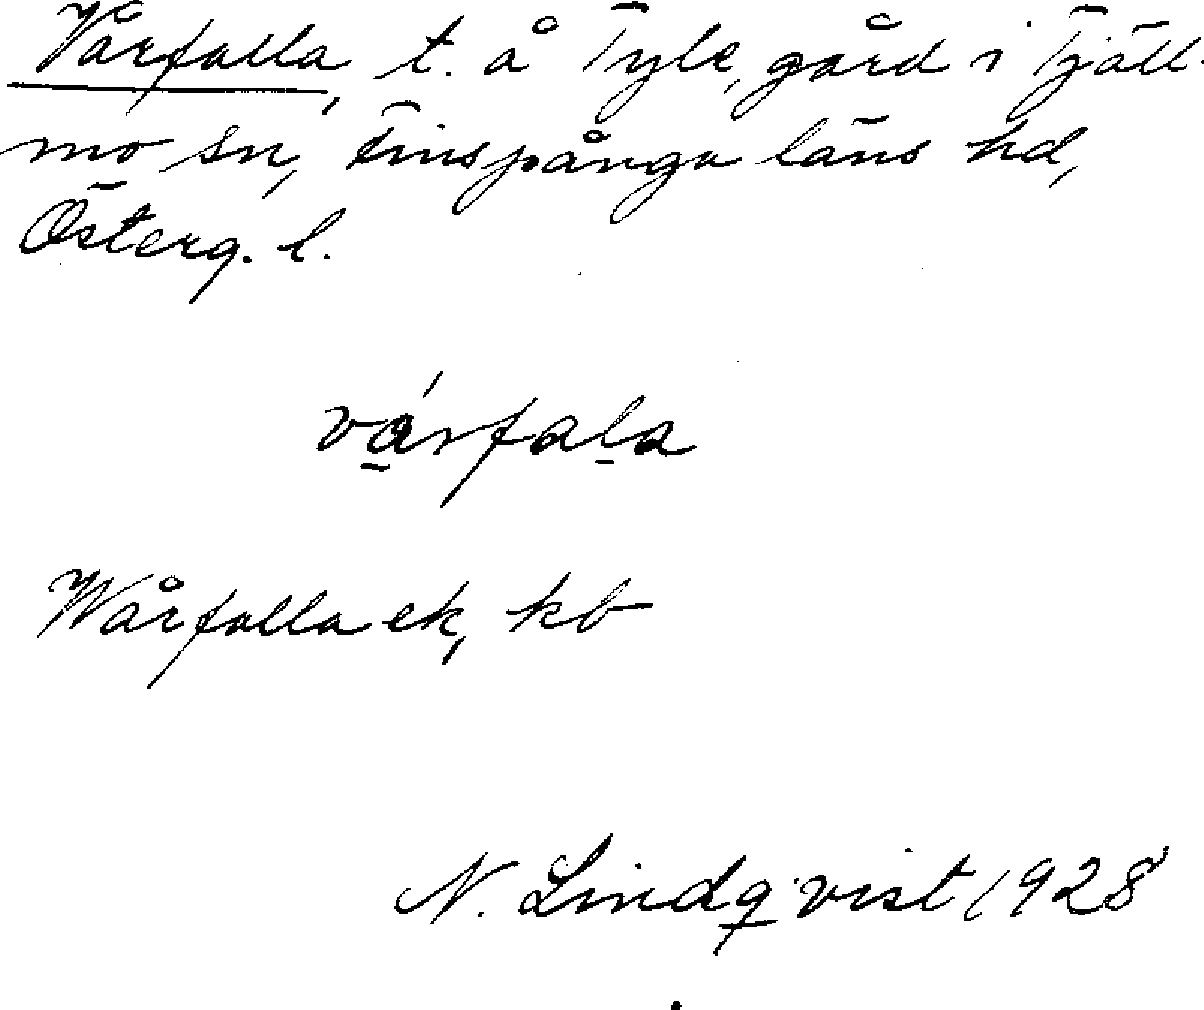 Vårfalla, t. å Tyle, gård i Tjäll-
mo sn, Finspånga läns hd,
Österg. l.
vårfala
Wårfalla ek, kb
N. Lindqvist 1928